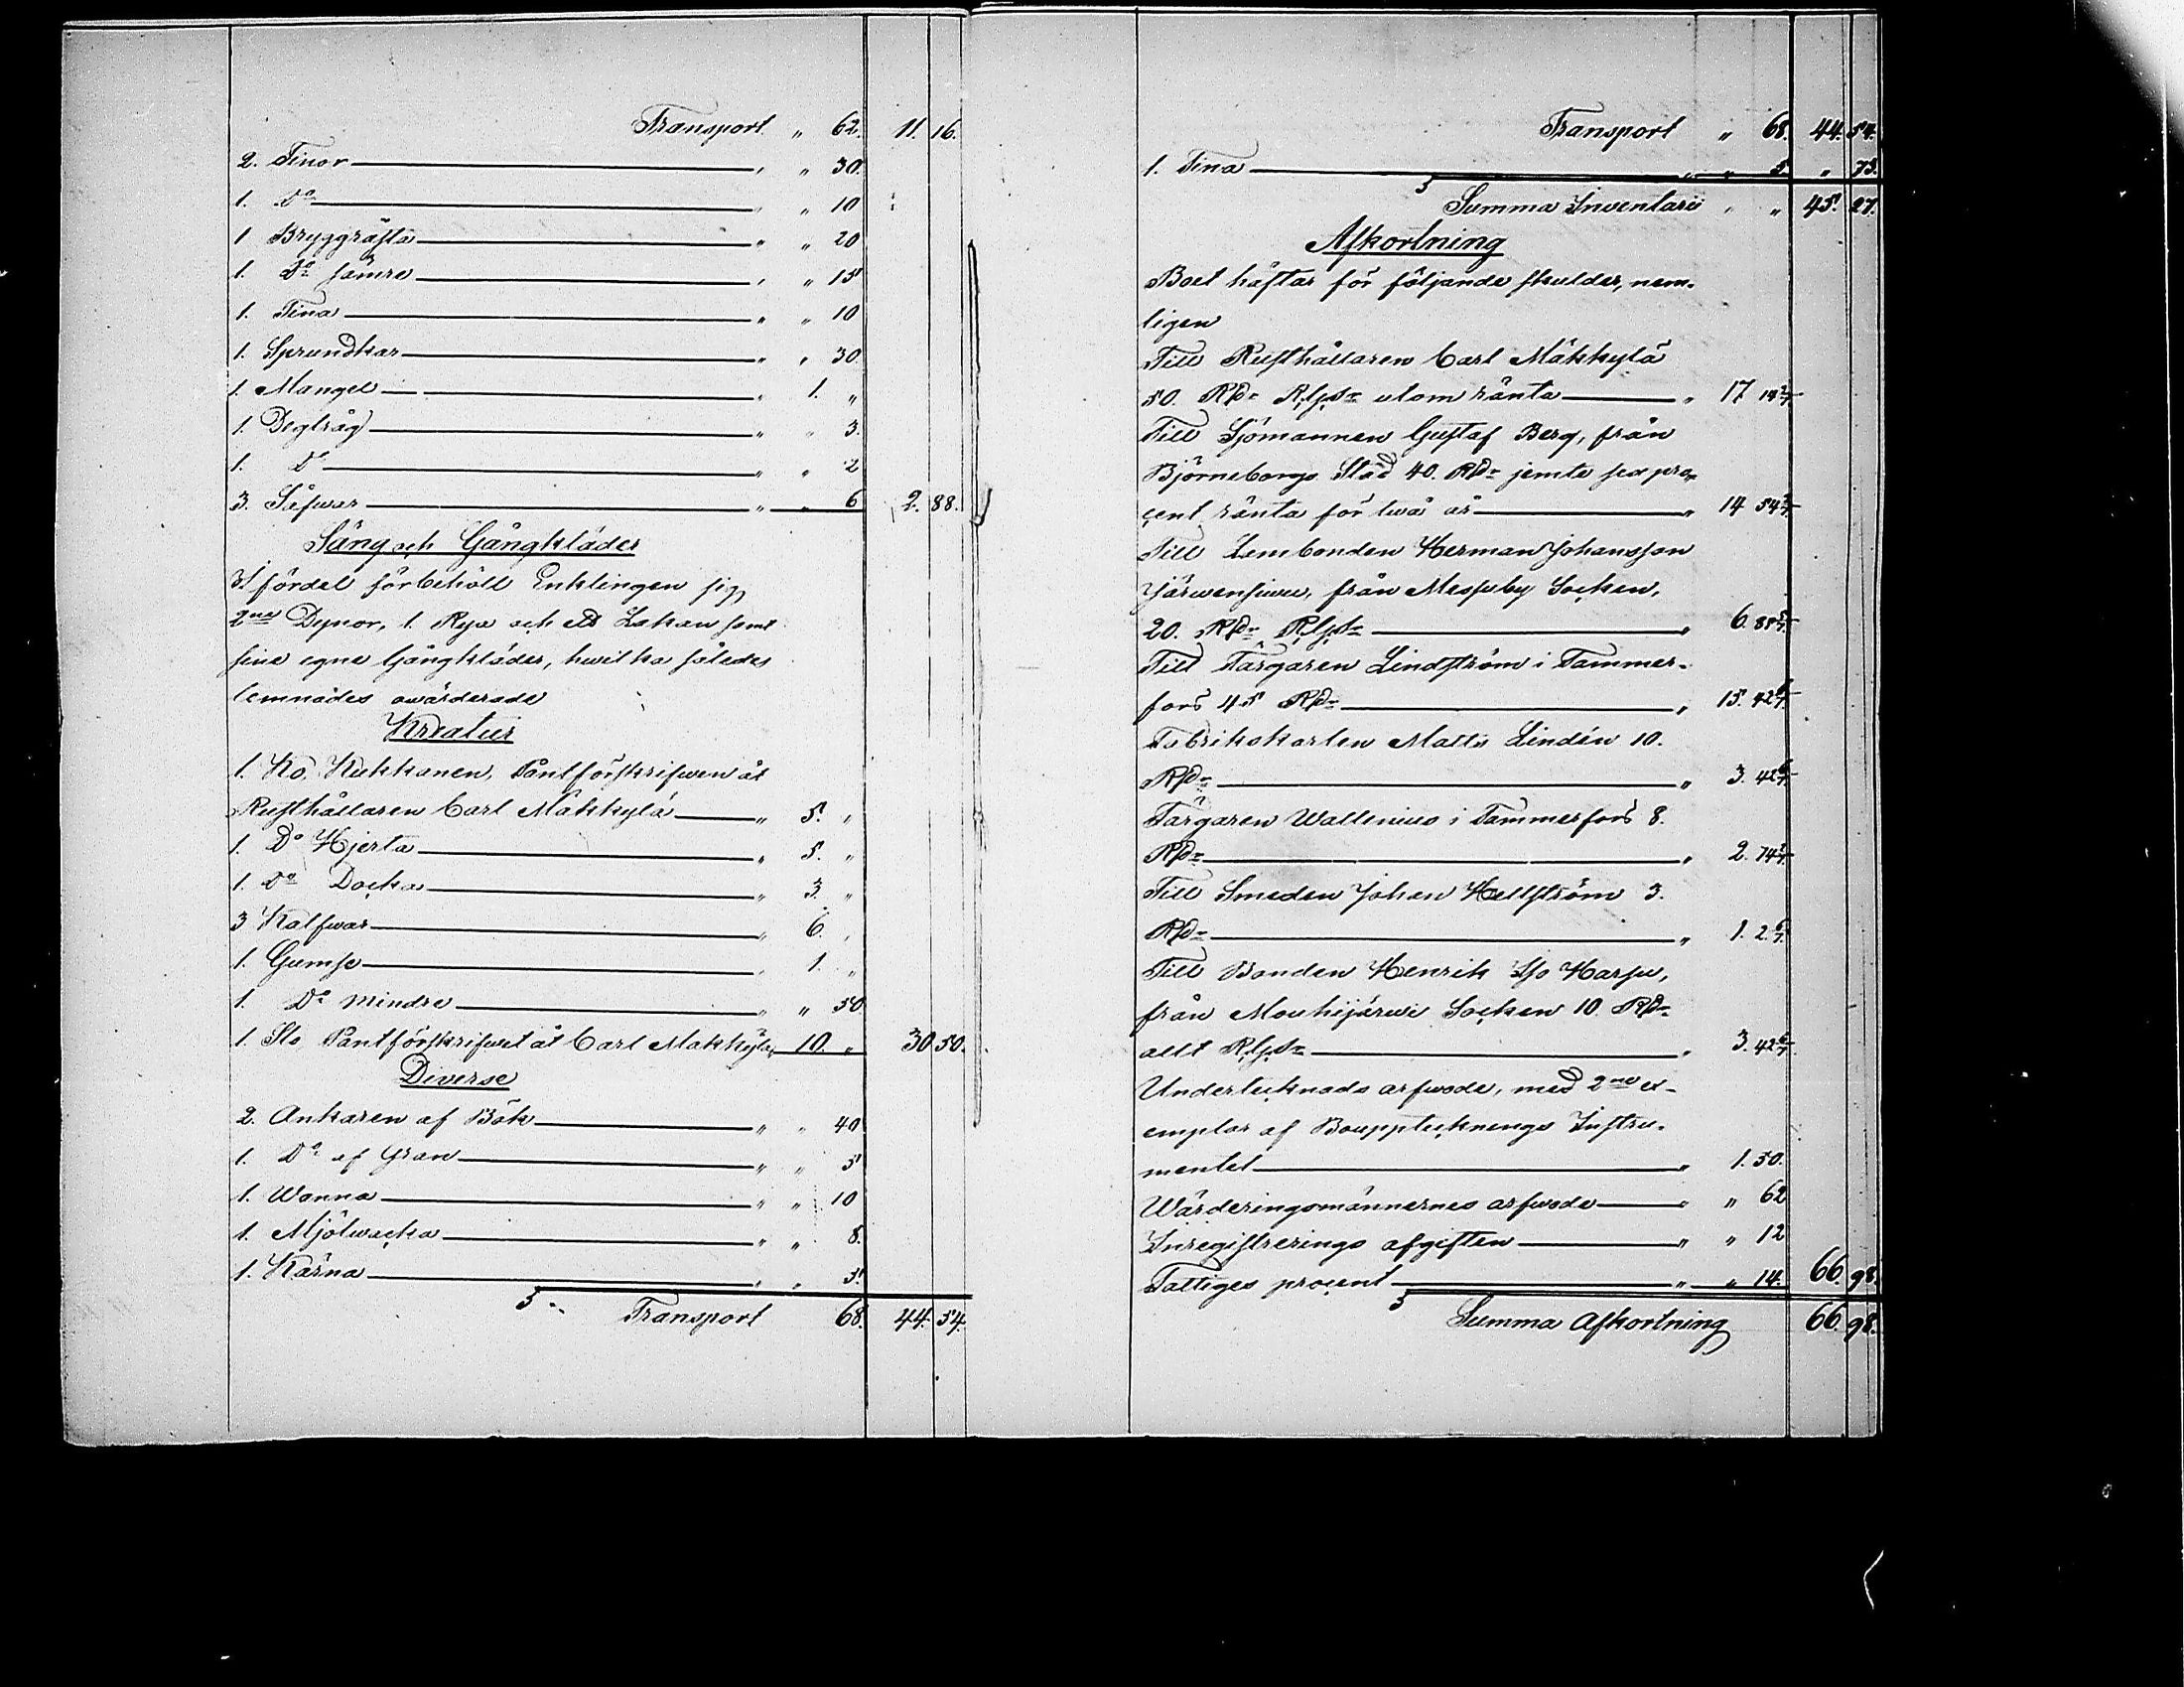 Transport " 62. 11. 16.
2. Tinor " " 30.
1. Do " " 10
1 Bryggräfta " " 20
1. Do sämre " " 15
1. Tina " " 10
1. Sprundkar " " 30.
1. Mangel " 1. "
1. Degtråg " " 3.
1. Do " " 2
3. Såfwar " " 6 2. 88.
Säng och Gångkläder
Fördel förbehöll Enklingen sig
2ne Dynor, 1. Rya och ett Lakan samt
sina egna Gångkläder, hwilka således
lemnades owärderade
Kreatur
1. Ko, Kukkanen, Pantförskrifwen åt
Rusthållaren Carl Mäkkylä " 5. "
1. Do Hjerta " 5. "
1. Do Docka " 3. "
3 Kalfwar " 6. "
1. Gumse " 1. "
1. Do mindre " " 50
1. Sto Pantförskrifwet åt Carl Makkyla 10. " 30 50.
Diverse
2. Ankaren af Bök " " 40
1. Do af Gran " " 5
1. Wanna " " 10
1. Mjölwacka " " 8.
1. Kärna " " 5.
Transport 68. 44. 54.
Transport " 68. 44. 54.
1. Tina " " 5 " 73.
Summa Inventarii " " 45. 27.
Afkortning
Boet häftar för följande skulder, nem-
ligen
Till Rusthållaren Carl Mäkkylä
50. Rd Rgs utom ränta " 17 14 2/7
Till Sjömannen Gustaf Berg, från
Björneborgs Stad 40. Rd jemte sex pro-
cent ränta för twå år " 14 54 2/7
Till Lambonden Herman Johansson
Järwensiwu, från Messuby Socken,
20. Rd Rgs " 6. 85 5/7
Till Färgaren Lindström i Tammer-
fors 45 Rd " 15. 42 6/7
Fabrikskarlen Matts Lindén 10.
Rd " 3. 42 6/7
Färgaren Wallenius i Tammerfors 8.
Rd " 2. 74 2/7
Till Smeden Johan Hellström 3.
Rd " 1. 2 6/7
Till Bonden Henrik Iso Harju,
från Mouhijärwi Socken 10. Rd
allt Rgs " 3. 42 6/7
Undertecknads arfwode, med 2ne ex-
emplar af Bouppteckninge Instru-
mentet " 1. 50.
Wärderingsmännernes arfwode " " 62
Inregistrerings afgiften " " 12
Fattiges procent " " 14. 66. 98.
Summa Afkortning 66. 98.